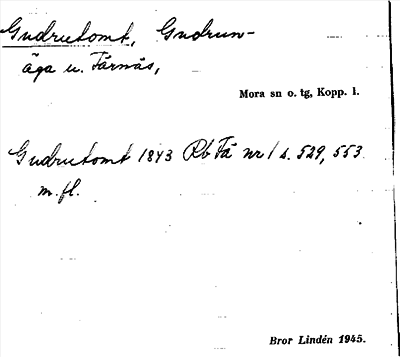 Gudrutomt, Gudrun-
äga u. Färnäs,
Mora sn o. tg, Kopp. l.
Gudrutomt 1843 Rb Fä nr 1 s. 529, 553
m.fl.
Bror Lindén 1945.